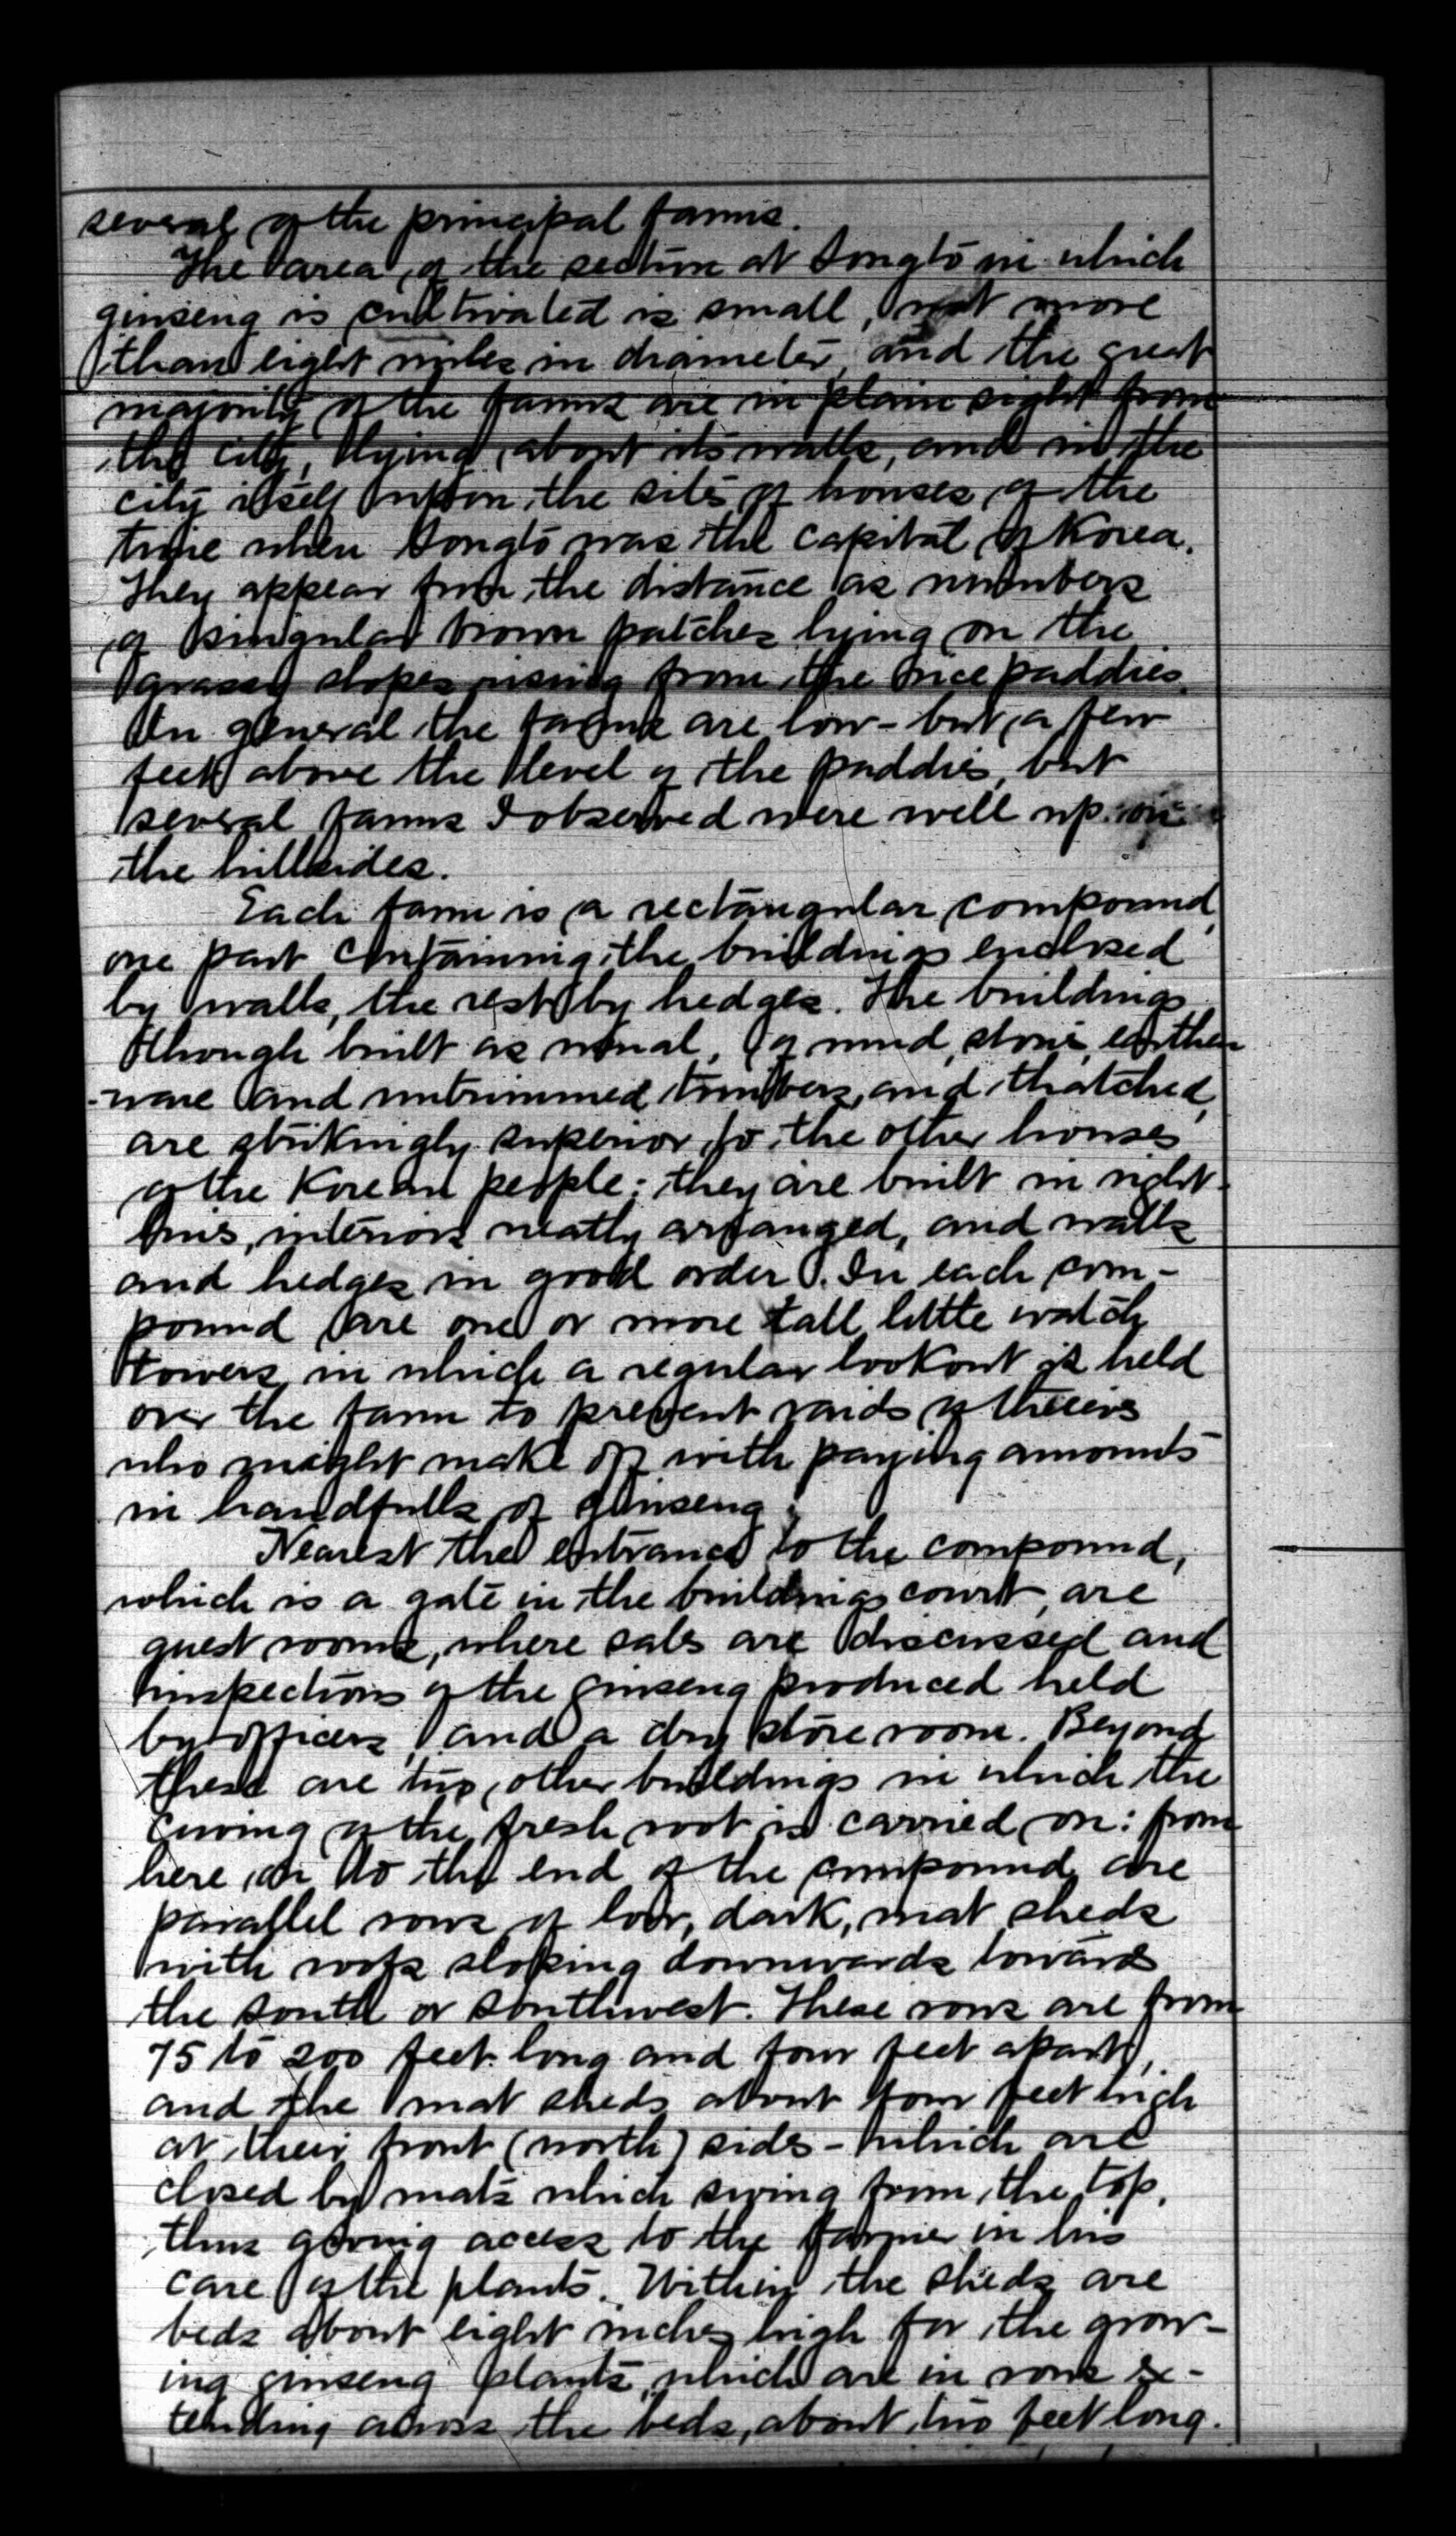 several of the principal farms.
The area, of the section at Songto in which
ginseng is cultivated is small, not more
than eight miles in diameter, and the great
majority of the farms are in plain sight from
the city, lying about its walls, and in the
city itself upon the sites of houses of the
time when Songto was the capital of Korea.
They appear from the distance as numbers
of singular brown patches lying on the
grassy slopes rising from the rice paddies.
In general the farms are low - but a few
feet above the level of the paddies, but
several farms I observed were well up on
the hillsides.
Each farm is a rectangular compound,
one part containing the buildings enclosed
by walls, the rest by hedges. The buildings
though built as usual, of mud, stone, earthen
-ware and untrimmed timbers, and thatched,
are strikingly superior to the other houses
of the Korean people: they are built in right
lines, interiors neatly arranged, and walls
and hedges in good order. In each com-
pound are one or more tall little watch
towers in which a regular lookout is held
over the farm to prevent raids of thieves
who might make off with paying amounts
in handfulls of ginseng.
Nearest the entrance to the compound,
which is a gate in the buildings court, are
guest rooms, where sales are discussed and
inspections of the ginseng produced held
by officers, and a dry store room. Beyond
these are two other buildings in which the
curing of the fresh root is carried on: from
here on to the end of the compound are
parallel rows of low, dark, mat sheds
with roofs sloping downwards towards
the south or southwest. These rows are from
75 to 200 feet long and four feet apart,
and the mat sheds about four feet high
at their front (north) sides - which are
closed by mats which swing from the top,
thus giving access to the farmer in his
care of the plants. Within the sheds are
beds about eight inches high for the grow-
ing ginseng plants, which are in rows ex-
tending across the beds, about two feet long.